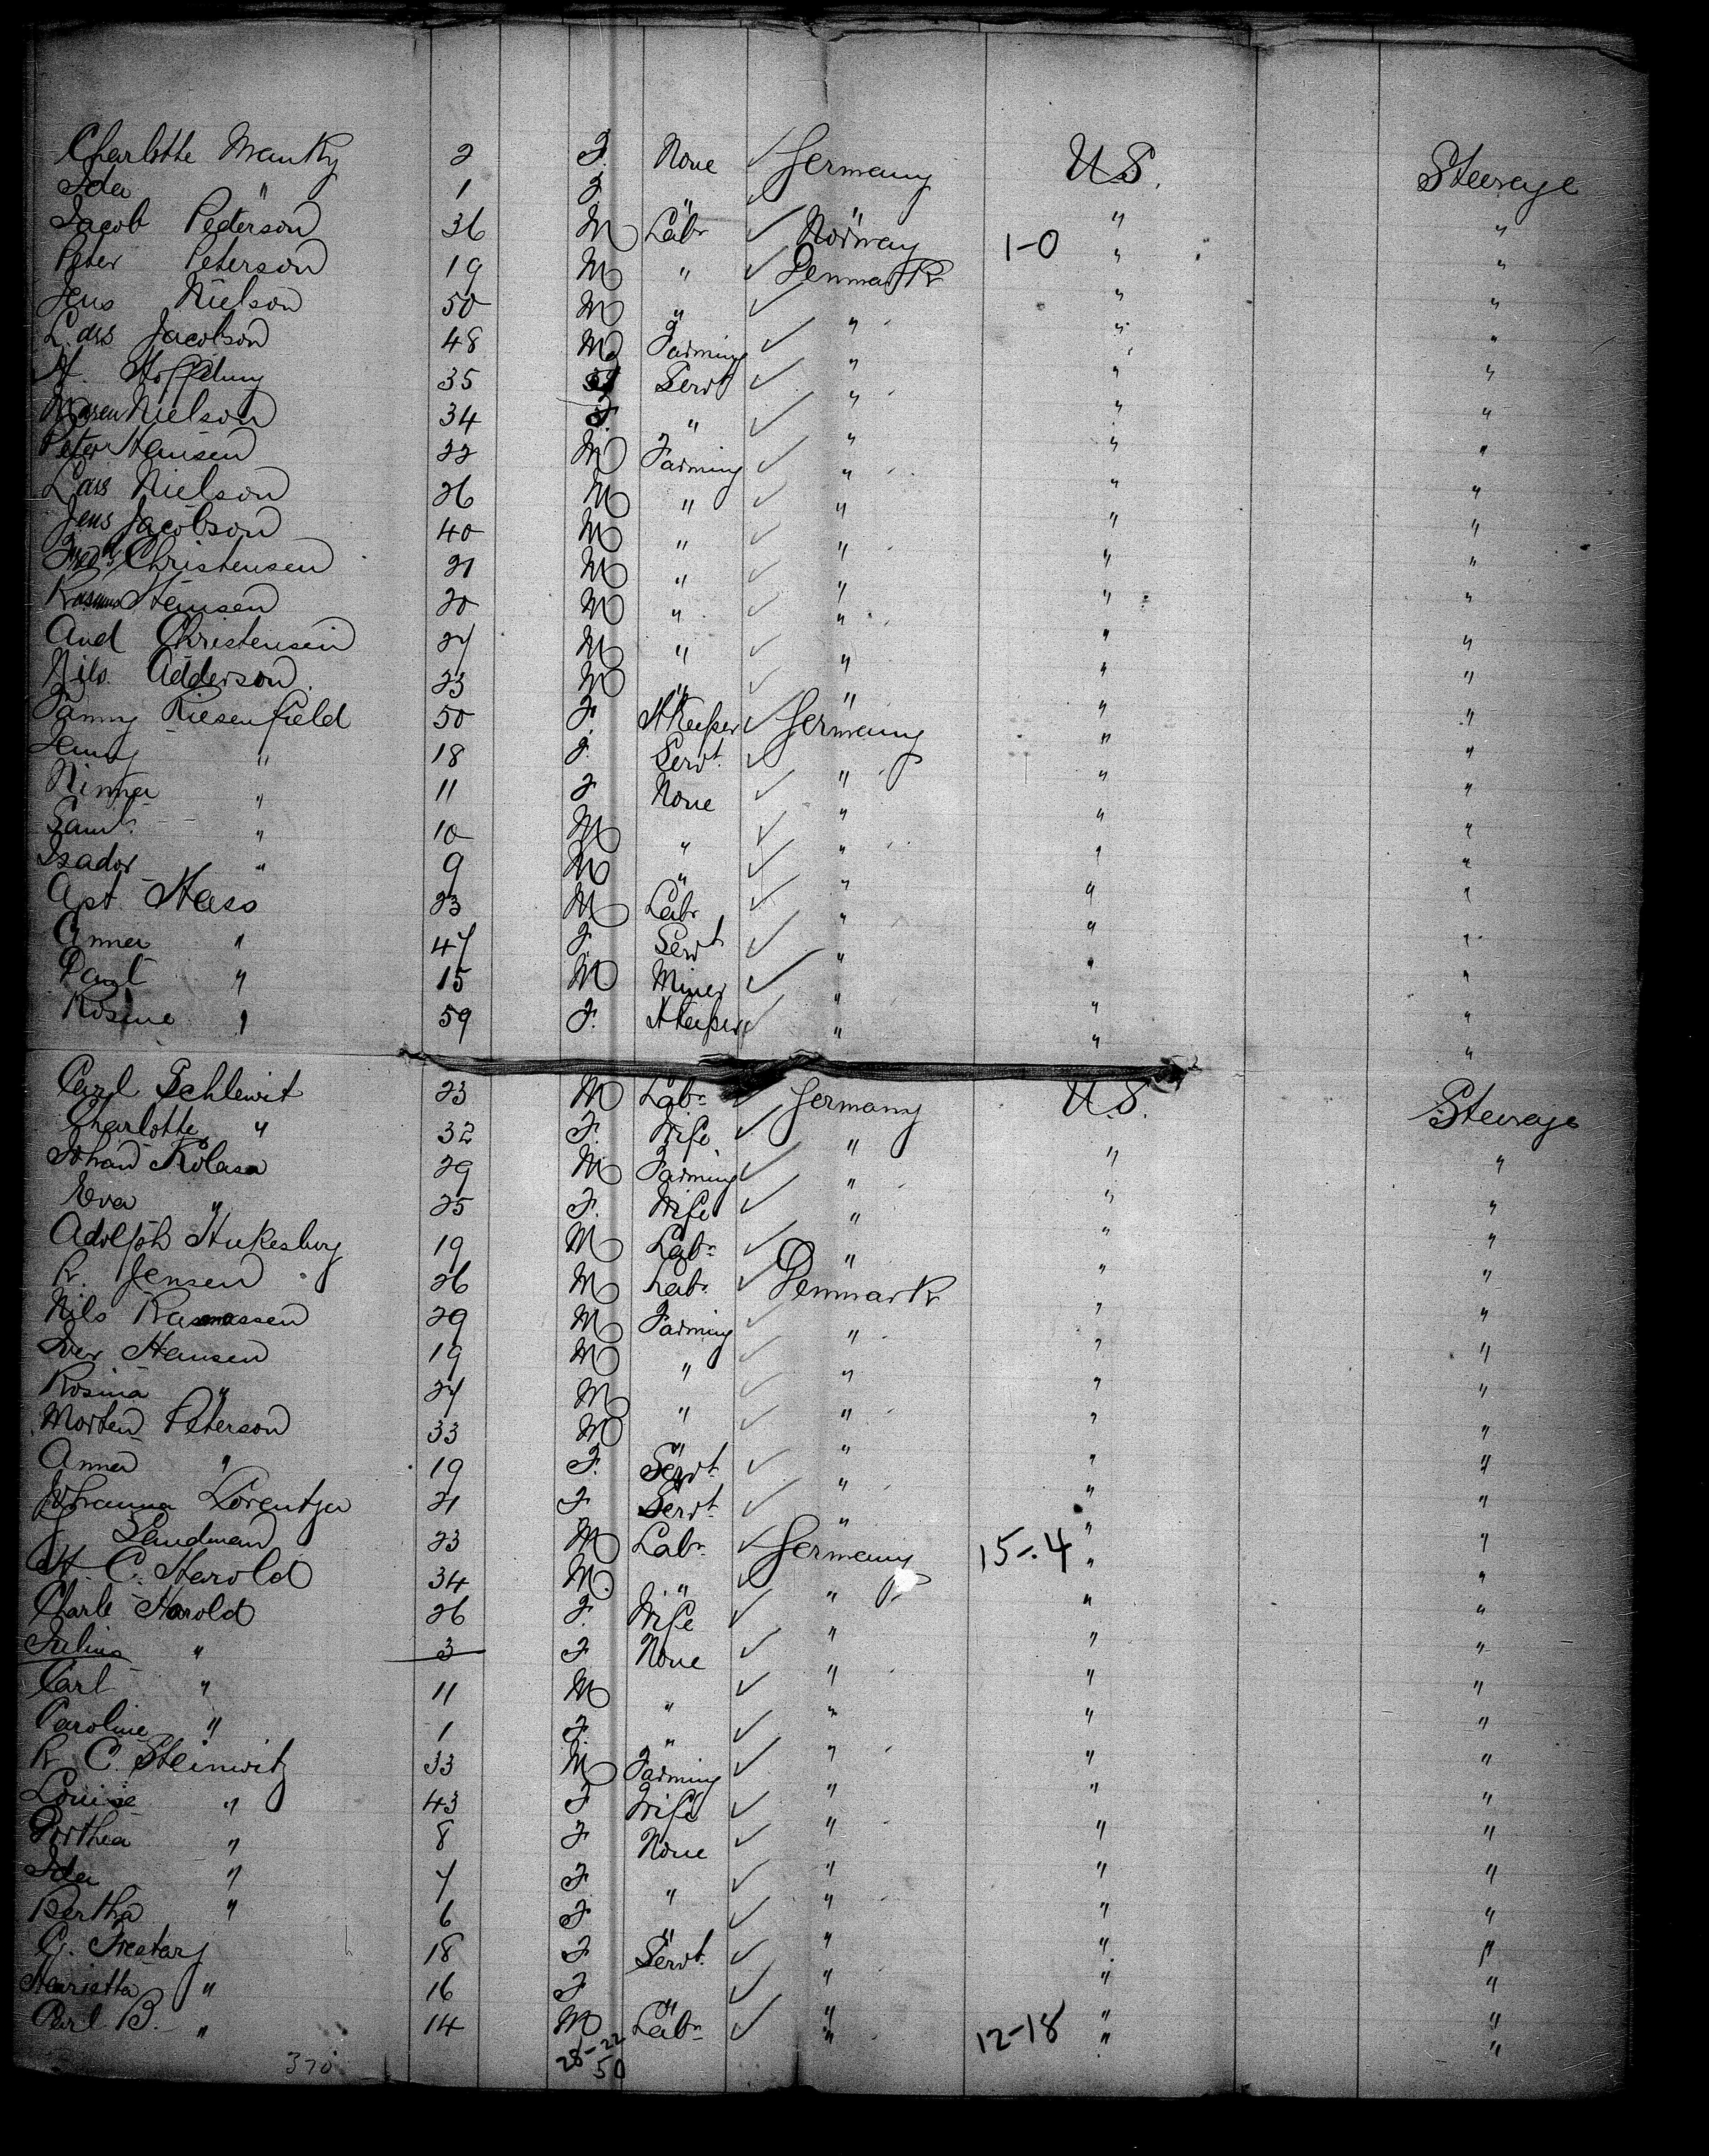 Charlotte Manky 2 F. None ✓ Germany U.S. Steerage
Ida " 1 F. " ✓ " " "
Jacob Pederson 36 M Labr ✓ Norway 1-0 " "
Peter Peterson 19 M " ✓ Denmark " "
Jens Nielson 50 M " ✓ " " "
Lars Jacobson 48 M Farming ✓ " " "
H. Hoffding 35 Servt ✓ " " "
Maren Nielson 34 F. " ✓ " " "
Peter Hansen 22 M Farming ✓ " " "
Lars Nielson 26 M " ✓ " " "
Jens Jacobson 40 M " ✓ " " "
Fredk Christensen 21 M " ✓ " " "
Rasmus Hansen 20 M " ✓ " " "
And Christensen 27 M " ✓ " " "
Nils Adderson 23 M " ✓ " " "
Fanny Riesenfield 50 F. HKeeper ✓ Germany " "
Jenny " 18 F. Servt ✓ " " "
Minna " 11 F None ✓ " " "
Saml. " 10 M " ✓ " " "
Isador " 9 M " ✓ " " "
Apt Hass 23 M Labr ✓ " " "
Anna " 47 F. Servt ✓ " " "
Paul " 15 M Miner ✓ " " "
Rosine " 59 F. HKeeper ✓ " " "
Carl Schlewit 23 M Labr ✓ Germany U.S. Steerage
Charlotte " 32 F. Wife ✓ " " "
Johan Kolasa 29 M Farming ✓ " " "
Eva " 25 F. Wife ✓ " " "
Adolph Hukesburg 19 M Labr ✓ " " "
R. Jensen 26 M Labr ✓ Denmark " "
Nils Rasmassen 29 M Farming ✓ " " "
Iver Hansen 19 M " ✓ " " "
Rosina " 27 M " ✓ " " "
Morten Peterson 33 M " ✓ " " "
Anna " 19 F. Servt ✓ " " "
Johanna Lorentzen 21 F Servt ✓ " " "
J. Landman 23 M Labr ✓ Germany 15-.4 " "
H. C. Harold 34 M. " ✓ " " "
Charle Harold 26 F. Wife ✓ " " "
Julius " 3 F None ✓ " " "
Carl " 11 M " ✓ " " "
Caroline " 1 F. " ✓ " " "
R C. Steinwitz 33 M Farming ✓ " " "
Louise " 43 F Wife ✓ " " "
Dorthea " 8 F None ✓ " " "
Ida " 7 F " ✓ " " "
Bertha " 6 F " ✓ " " "
C. 18 F Servt. ✓ " " "
Henrietta " 16 F " ✓ " " "
Carl B. " 14 M Labr ✓ " 12-18 " "
370 28-22
50